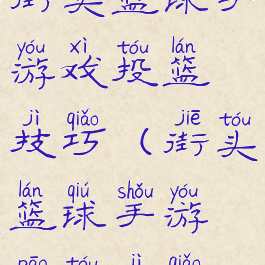 街头篮球手
yóu xì tóu lán
游戏投篮
jì qiǎo jiē tóu
技巧（街头
lán qiú shǒu yóu
篮球手游